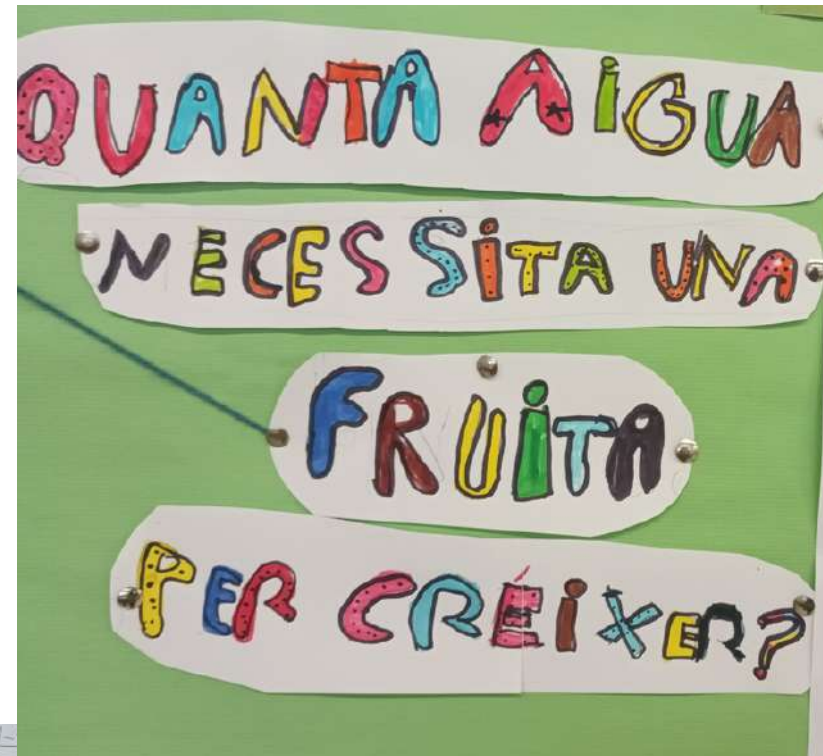 QUANTA AIGUA
NECESSITA UNA
FRUITA
PER CRÉIXER?